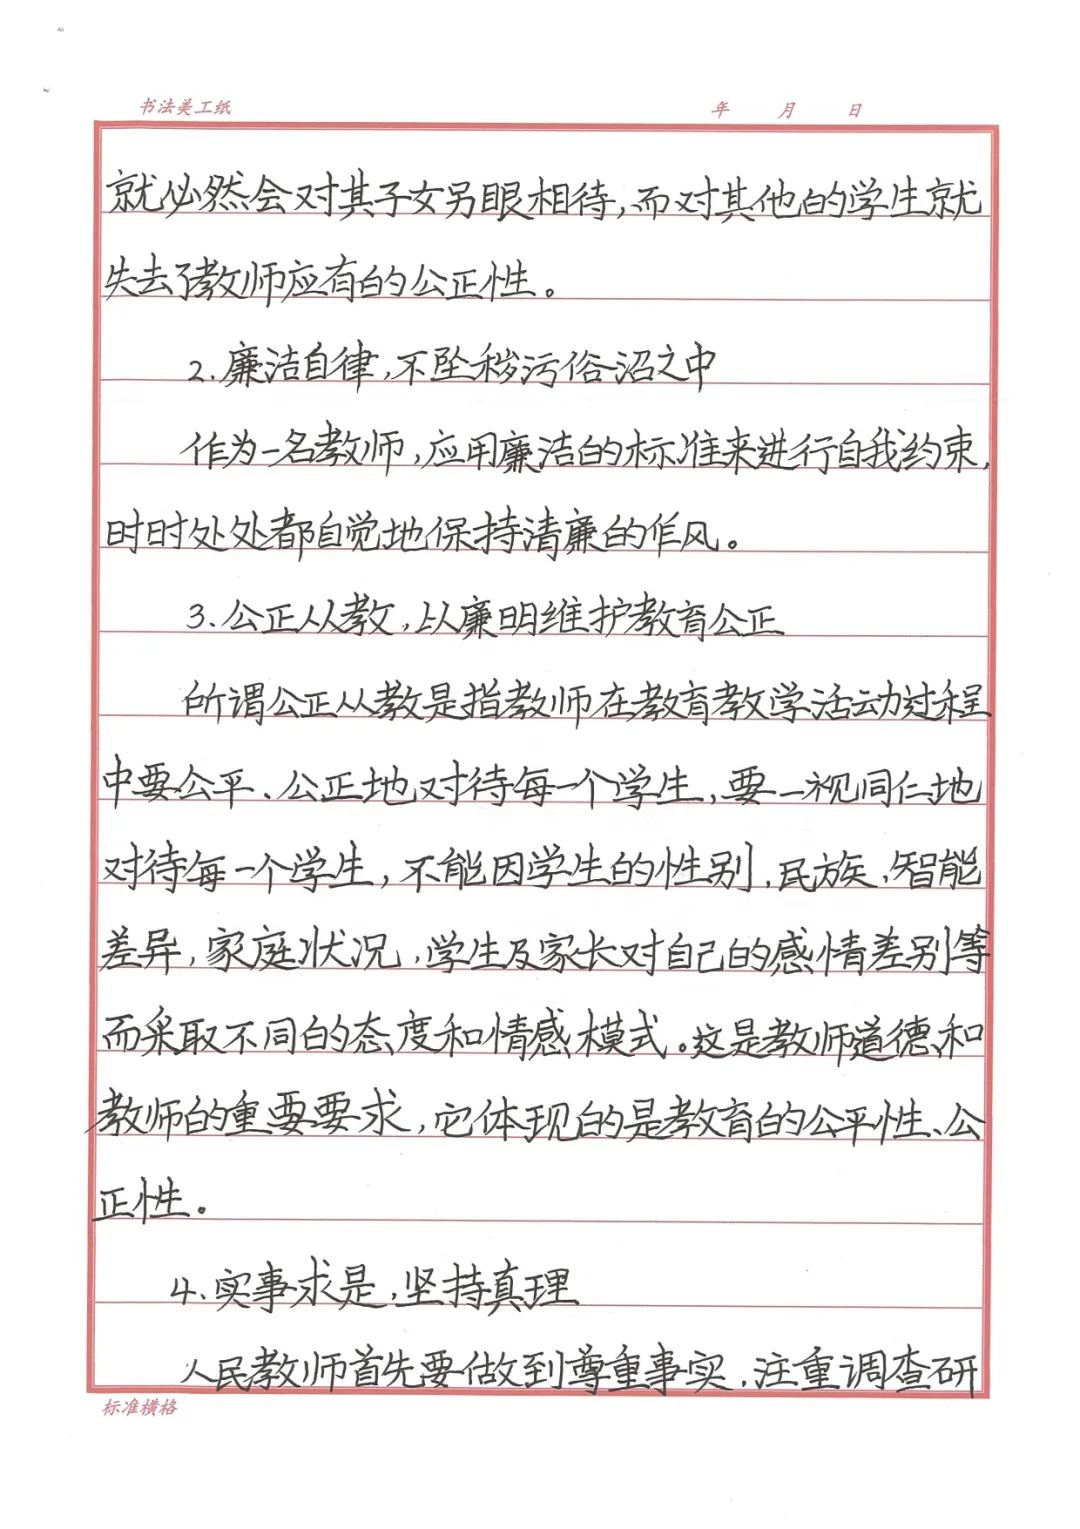 书法美工纸 年 月 日
就必然会对其子女另眼相待,而对其他的学生就
失去了教师应有的公正性。
2.廉洁自律,不坠秽污俗沼之中
作为一名教师,应用廉洁的标准来进行自我约束,
时时处处都自觉地保持清廉的作风。
3.公正从教,以廉明维护教育公正
所谓公正从教是指教师在教育教学活动过程
中要公平、公正地对待每一个学生,要一视同仁地
对待每一个学生,不能因学生的性别、民族、智能
差异,家庭状况,学生及家长对自己的感情差别等
而采取不同的态度和情感模式。这是教师道德和
教师的重要要求,它体现的是教育的公平性、公
正性。
4.实事求是,坚持真理
人民教师首先要做到尊重事实,注重调查研
标准横格